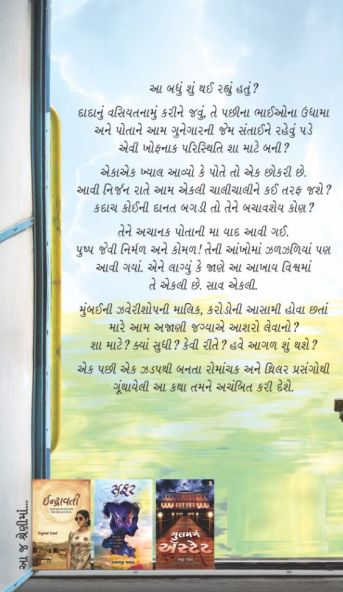 આ બધું શું થઈ રહ્યું હતું?
દાદાનું વસિયતનામું કરીને જવું, તે પછીના ભાઈઓના ઉધામા
અને પોતાને આમ ગુનેગારની જેમ સંતાઈને રહેવું પડે
એવી ખોફનાક પરિસ્થિતિ શા માટે બની?
એકાએક ખ્યાલ આવ્યો કે પોતે તો એક છોકરી છે.
આવી નિર્જન રાતે આમ એકલી ચાલીચાલીને કઈ તરફ જશે?
કદાચ કોઈની દાનત બગડી તો તેને બચાવશેય કોણ?
તેને અચાનક પોતાની મા યાદ આવી ગઈ.
પુષ્પ જેવી નિર્મળ અને કોમળ! તેની આંખોમાં ઝળઝળિયાં પણ
આવી ગયાં. એને લાગ્યું કે જાણે આ આખાય વિશ્વમાં
તે એકલી છે. સાવ એકલી.
મુંબઈની ઝવેરીશોપની માલિક, કરોડોની આસામી હોવા છતાં
મારે આમ અજાણી જગ્યાએ આશરો લેવાનો?
શા માટે? ક્યાં સુધી? કેવી રીતે? હવે આગળ શું થશે?
એક પછી એક ઝડપથી બનતા રોમાંચક અને થ્રિલર પ્રસંગોથી
ગૂંથાયેલી આ કથા તમને અચંબિત કરી દેશે.
આ જ શ્રેણીમાં...
ઈન્દ્રાવતી
સફર
ગુલમર્ગ
એસ્ટેટ